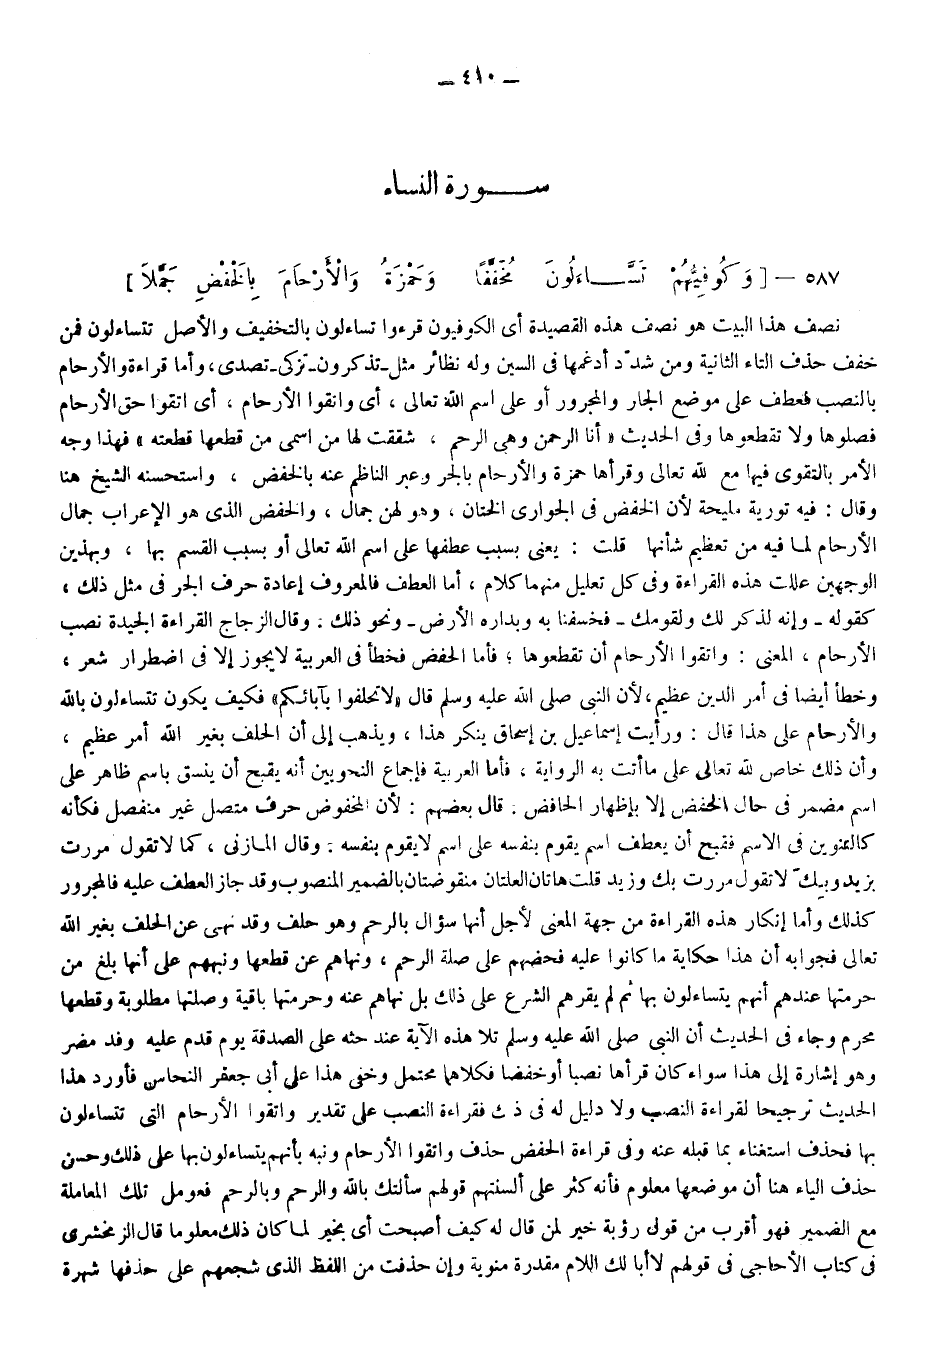 — ٤١٠ —
ســـورة النساء
٥٨٧ — [ وَكُوفِيُّهُمْ تَسَّـــاءَلُونَ مُخَفَّفًا وَحَمْزَةُ وَالْأَرْحَامَ بِالْخَفْضِ جَمَّلَا ]
نصف هذا البيت هو نصف هذه القصيدة أى الكوفيون قرءوا تساءلون بالتخفيف والأصل تتساءلون فمن
خفف حذف التاء الثانية ومن شدّد أدغمها فى السين وله نظائر مثل ـ تذكرون ـ تزكى ـ تصدى ، وأما قراءة والأرحام
بالنصب فعطف على موضع الجار والمجرور أو على اسم الله تعالى ، أى واتقوا الأرحام ، أى اتقوا حق الأرحام
فصلوها ولا تقطعوها وفى الحديث « أنا الرحمن وهى الرحم ، شققت لها من اسمى من قطعها قطعته » فهذا وجه
الأمر بالتقوى فيها مع لله تعالى وقرأها حمزة والأرحام بالجر وعبر الناظم عنه بالخفض ، واستحسنه الشيخ هنا
وقال : فيه تورية مليحة لأن الخفض فى الجوارى الختان ، وهو لهن جمال ، والخفض الذى هو الإعراب جمال
الأرحام لما فيه من تعظيم شأنها قلت : يعنى بسبب عطفها على اسم الله تعالى أو بسبب القسم بها ، وبهذين
الوجهين عللت هذه القراءة وفى كل تعليل منهما كلام ، أما العطف فالمعروف إعادة حرف الجر فى مثل ذلك ،
كقوله ـ وإنه لذكر لك ولقومك ـ فخسفنا به وبداره الأرض ـ ونحو ذلك . وقال الزجاج القراءة الجيدة نصب
الأرحام ، المعنى : واتقوا الأرحام أن تقطعوها ؛ فأما الخفض فخطأ فى العربية لا يجوز إلا فى اضطرار شعر ،
وخطأ أيضا فى أمر الدين عظيم ، لأن النبى صلى الله عليه وسلم قال «لا تحلفوا بآبائكم» فكيف يكون تتساءلون بالله
والأرحام على هذا قال : ورأيت إسماعيل بن إسحاق ينكر هذا ، ويذهب إلى أن الحلف بغير الله أمر عظيم ،
وأن ذلك خاص لله تعالى على ماأتت به الرواية ، فأما العربية فإجماع النحويين أنه يقبح أن ينسق باسم ظاهر على
اسم مضمر فى حال الخفض إلا بإظهار الخافض . قال بعضهم : لأن المخفوض حرف متصل غير منفصل فكأنه
كالتنوين فى الاسم فقبح أن يعطف اسم يقوم بنفسه على اسم لا يقوم بنفسه . وقال المازنى ، كما لا تقول مررت
بزيد وبك لا تقول مررت بك وزيد قلت هاتان العلتان منقوضتان بالضمير المنصوب وقد جاز العطف عليه فالمجرور
كذلك وأما إنكار هذه القراءة من جهة المعنى لأجل أنها سؤال بالرحم وهو حلف وقد نهى عن الحلف بغير الله
تعالى فجوابه أن هذا حكاية ما كانوا عليه فحضهم على صلة الرحم ، ونهاهم عن قطعها ونبههم على أنها بلغ من
حرمتها عندهم أنهم يتساءلون بها ثم لم يقرهم الشرع على ذلك بل نهاهم عنه وحرمتها باقية وصلتها مطلوبة وقطعها
محرم وجاء فى الحديث أن النبى صلى الله عليه وسلم تلا هذه الآية عند حثه على الصدقة يوم قدم عليه وفد مضر
وهو إشارة إلى هذا سواء كان قرأها نصبا أو خفضا فكلاهما محتمل وخفى هذا على أبى جعفر النحاس فأورد هذا
الحديث ترجيحا لقراءة النصب ولا دليل له فى ذ ك فقراءة النصب على تقدير واتقوا الأرحام التى تتساءلون
بها فحذف استغناء بما قبله عنه وفى قراءة الخفض حذف واتقوا الأرحام ونبه بأنهم يتساءلون بها على ذلك وحسن
حذف الباء هنا أن موضعها معلوم فأنه كثر على ألسنتهم قولهم سألتك بالله والرحم وبالرحم فعومل تلك المعاملة
مع الضمير فهو أقرب من قول رؤبة خير لمن قال له كيف أصبحت أى بخير لما كان ذلك معلوما قال الزمخشرى
فى كتاب الأحاجى فى قولهم لا أبا لك اللام مقدرة منوية وإن حذفت من اللفظ الذى شجعهم على حذفها شهرة